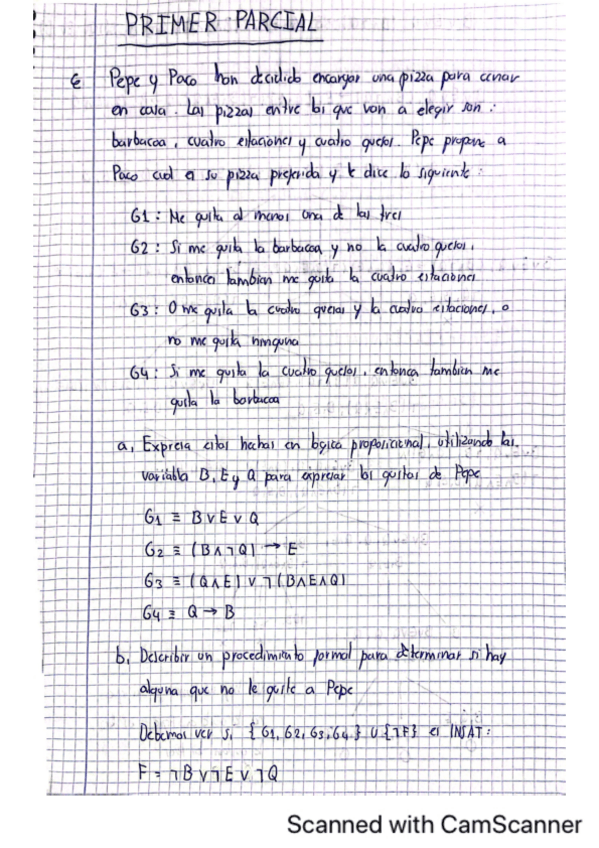 PRIMER PARCIAL
Pepe y Paco han decidido encargar una pizza para cenar
en casa. Las pizzas entre las que van a elegir son:
barbacoa, cuatro estaciones y cuatro quesos. Pepe propone a
Paco cual es su pizza preferida y le dice lo siguiente:
G1: Me gusta al menos una de las tres
G2: Si me gusta la barbacoa y no la cuatro quesos,
entonces tambien me gusta la cuatro estaciones
G3: O me gusta la cuatro quesos y la cuatro estaciones, o
no me gusta ninguna
G4: Si me gusta la cuatro quesos, entonces tambien me
gusta la barbacoa
a, Expresa estos hechos en logica proposicional, utilizando las
variables B, E y Q para expresar los gustos de Pepe
G1 ≡ B∨E∨Q
G2 ≡ (B∧¬Q) → E
G3 ≡ (Q∧E) ∨ ¬(B∧E∧Q)
G4 ≡ Q → B
b, Describir un procedimiento formal para determinar si hay
alguna que no le guste a Pepe
Debemos ver si {G1, G2, G3, G4} ∪ {¬F} es INSAT:
F = ¬B∨¬E∨¬Q
Scanned with CamScanner